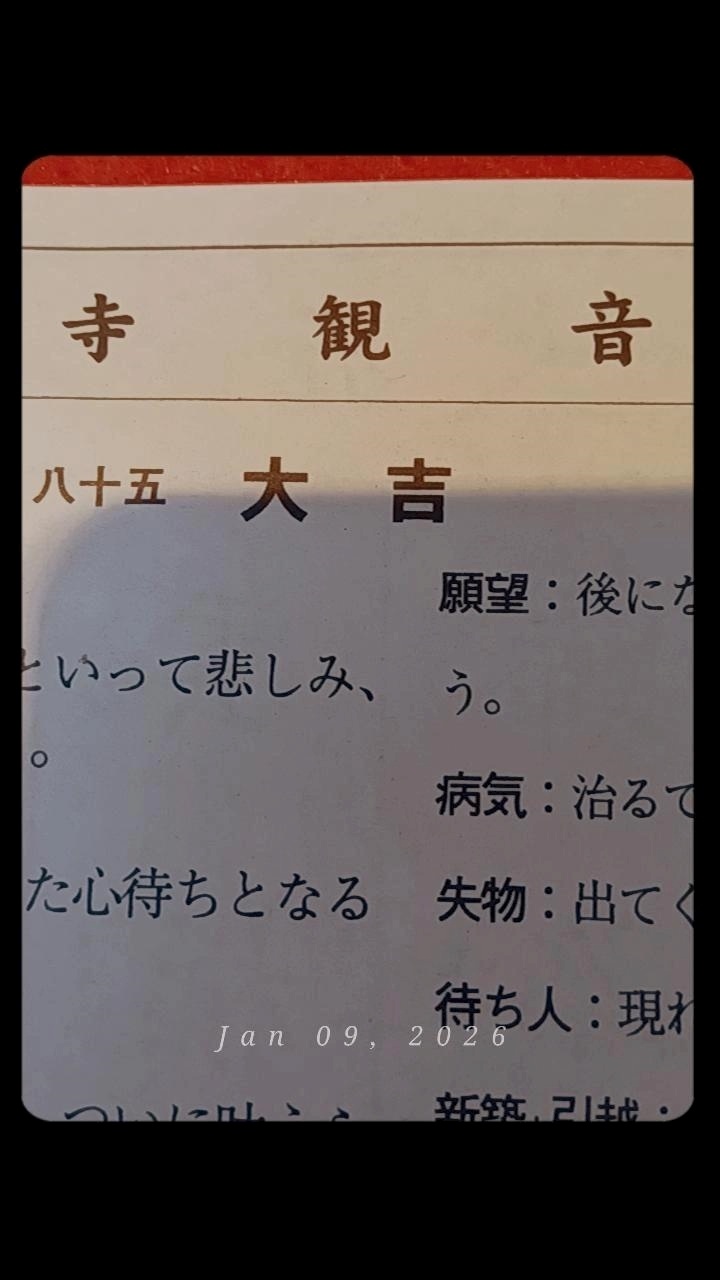 寺 観 音
八十五 大 吉
といって悲しみ、
。
た心待ちとなる
ついに叶うら
願望：後にな
う。
病気：治るで
失物：出てく
待ち人：現れ
新築・引越：
Jan 09, 2026